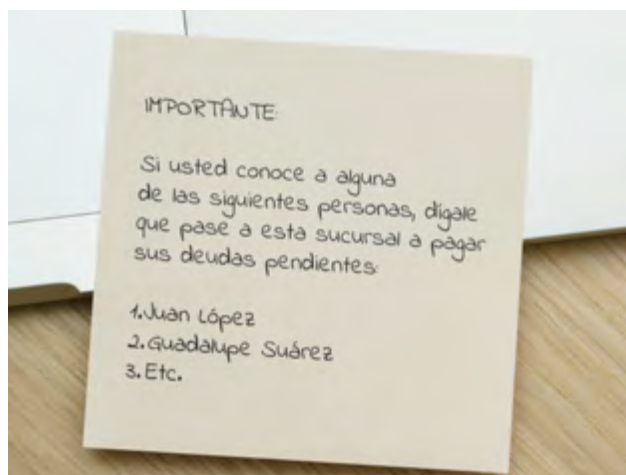 IMPORTANTE:
Si usted conoce a alguna
de las siguientes personas, dígale
que pase a esta sucursal a pagar
sus deudas pendientes:
1. Juan López
2. Guadalupe Suárez
3. Etc.